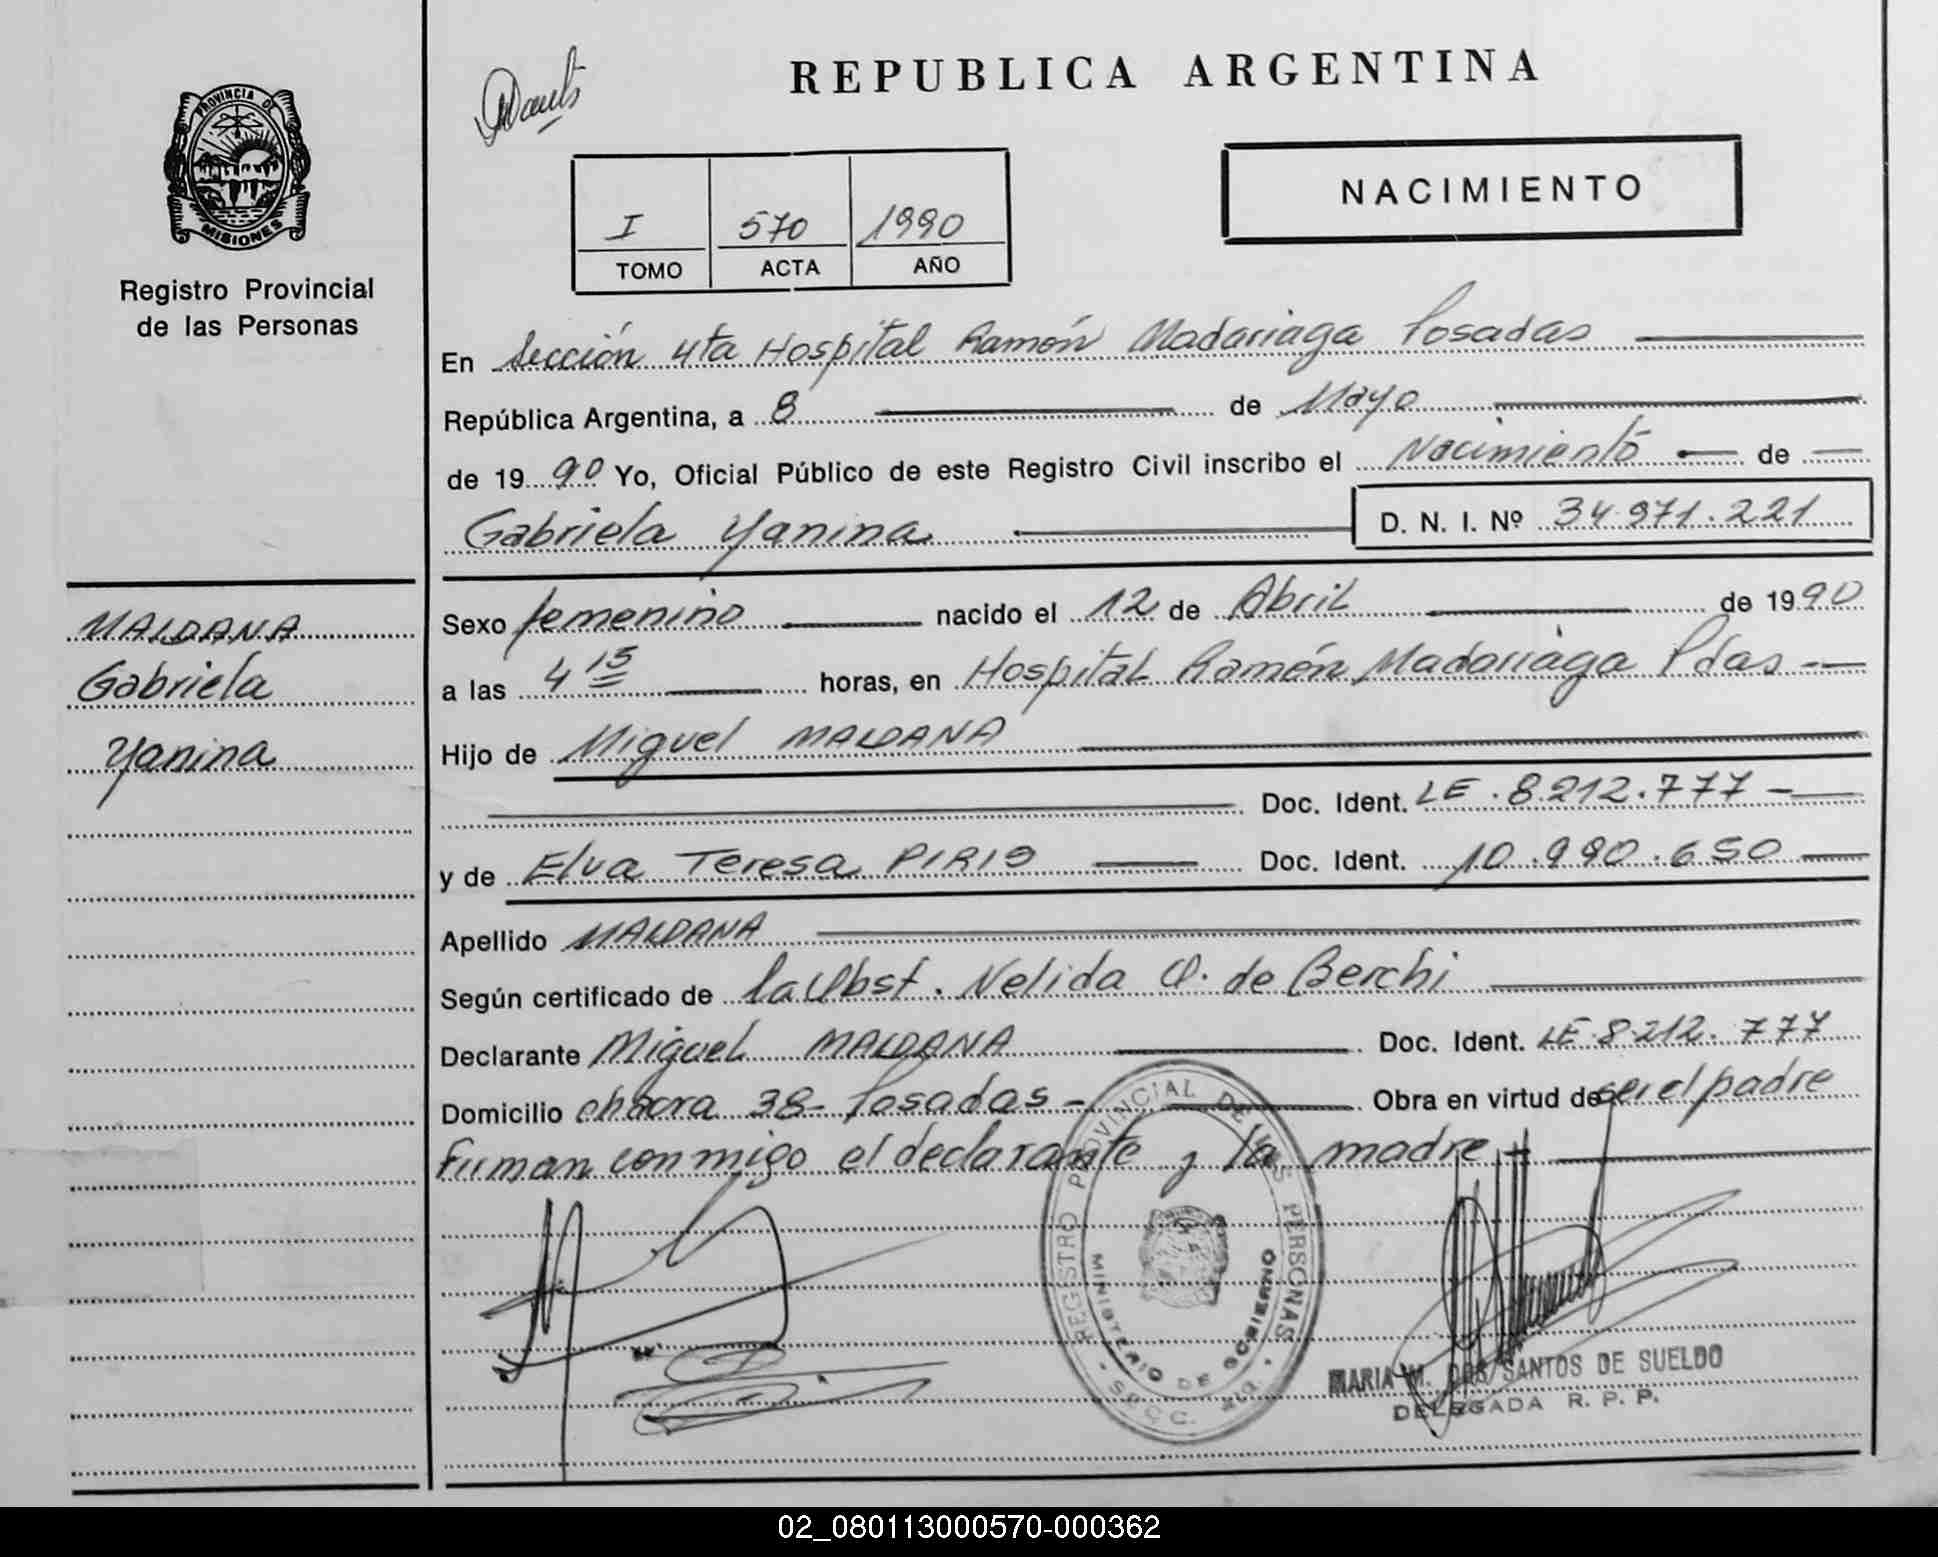 REPUBLICA ARGENTINA
PROVINCIA DE
MISIONES
Registro Provincial
de las Personas
NACIMIENTO
I 570 1990
TOMO ACTA AÑO
En Sección 4ta Hospital Ramón Madariaga Posadas
República Argentina, a 8 de Mayo
de 1990 Yo, Oficial Público de este Registro Civil inscribo el Nacimiento de
Gabriela Yanina D. N. I. Nº 34.971.221
MALDANA
Gabriela
Yanina
Sexo femenino nacido el 12 de Abril de 1990
a las 4 15 horas, en Hospital Ramón Madariaga Pdas
Hijo de Miguel MALDANA
Doc. Ident. LE. 8.212.777
y de Elva Teresa PIRIS Doc. Ident. 10.990.650
Apellido MALDANA
Según certificado de la Obst. Nelida O. de Berchi
Declarante Miguel MALDANA Doc. Ident. LE 8.212.777
Domicilio chacra 38 - Posadas - Obra en virtud de ser el padre
Firman conmigo el declarante y la madre
REGISTRO PROVINCIAL DE LAS PERSONAS
MINISTERIO DE GOBIERNO
MARIA M. DOS SANTOS DE SUELDO
DELEGADA R. P. P.
02_080113000570-000362